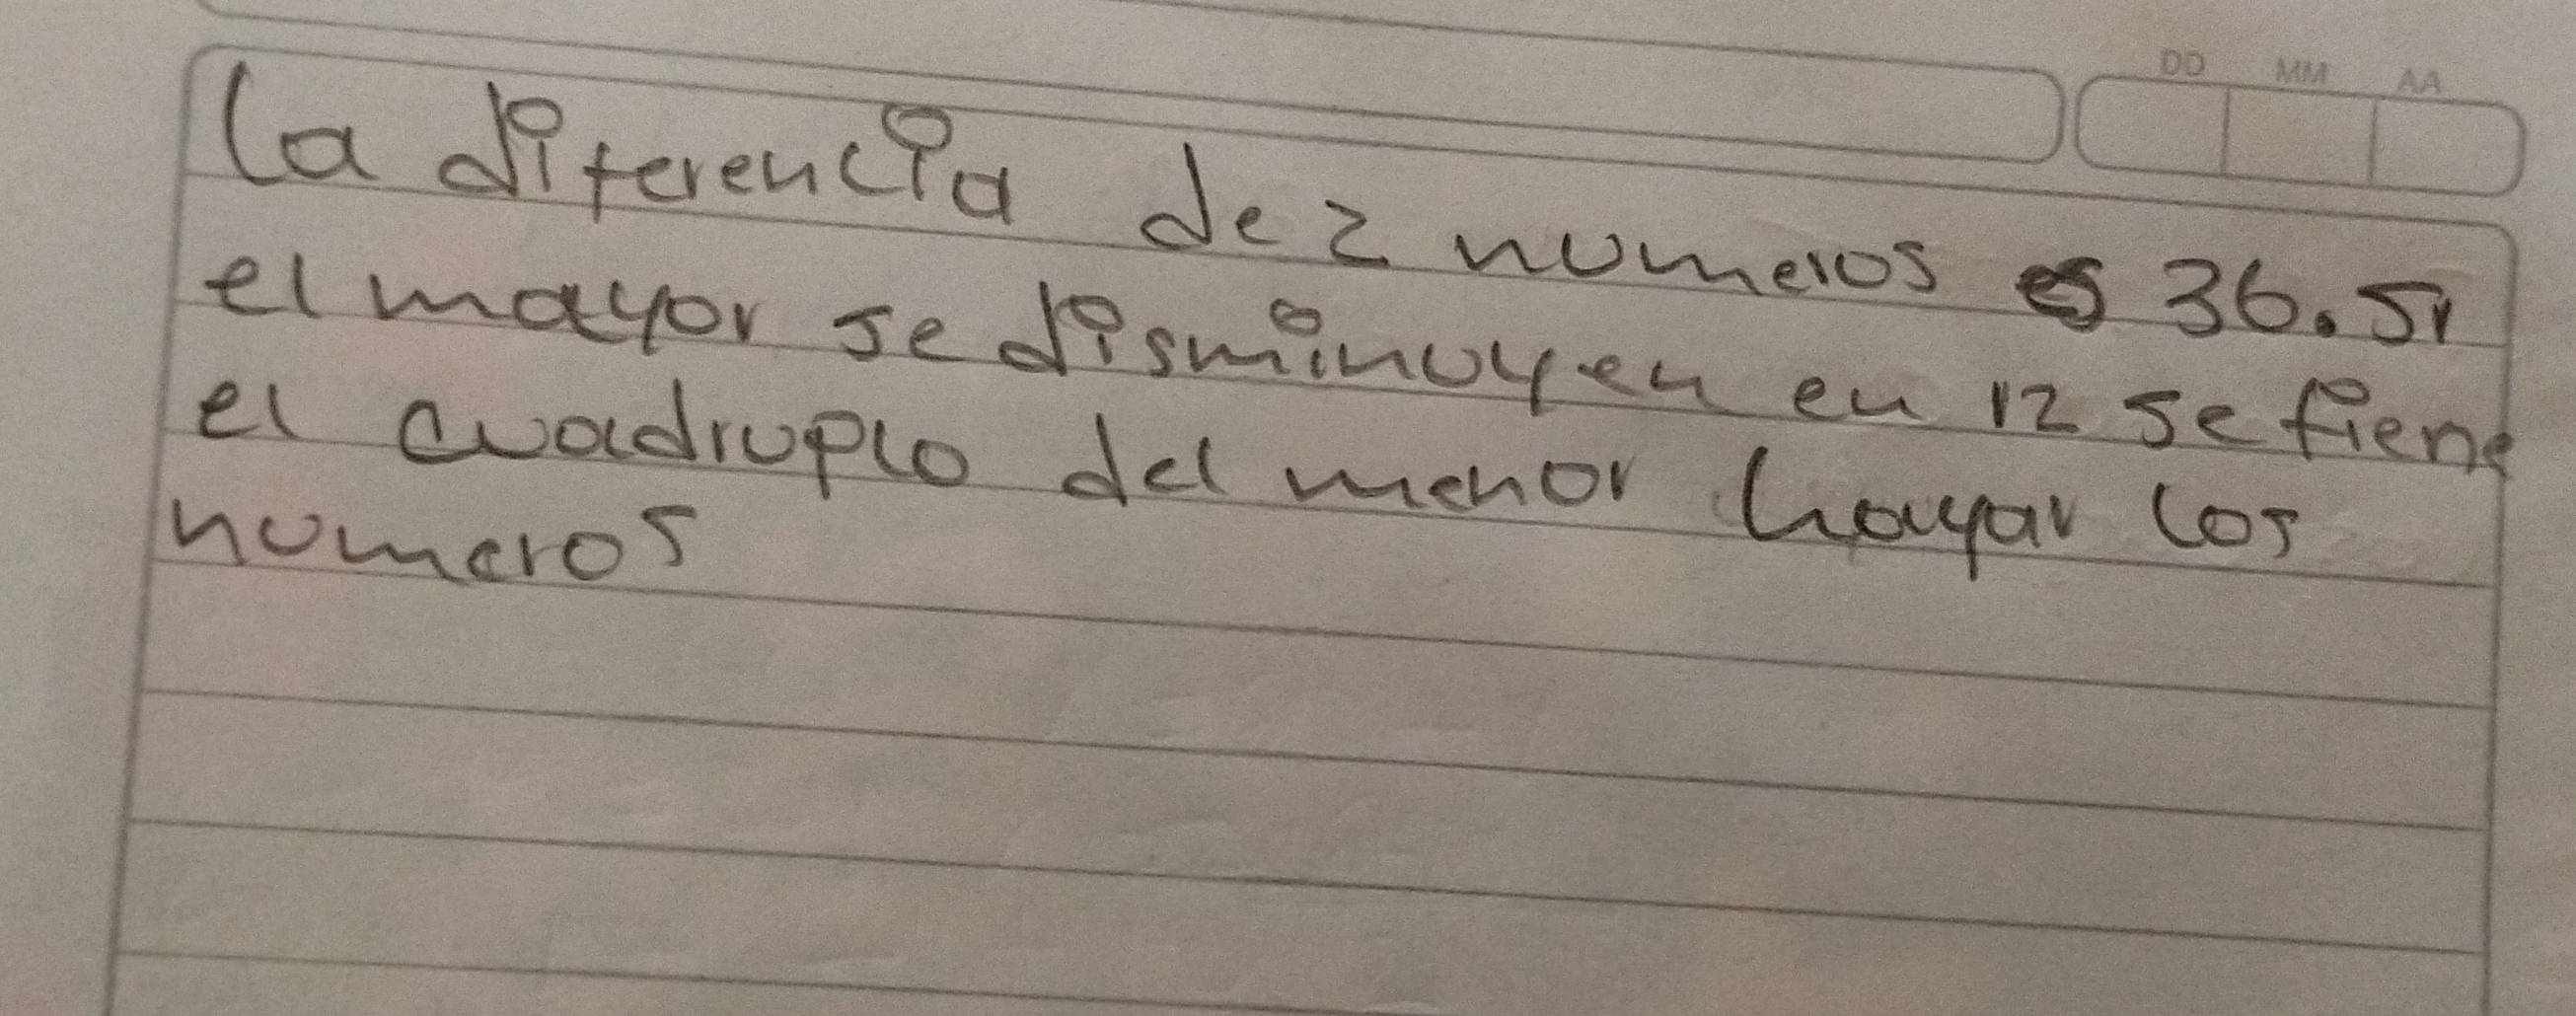 DD MM AA
la diferencia de 2 numeros es 36. Si
el mayor se disminuyen en 12 se tiene
el cuadruplo del menor hayar los
numeros